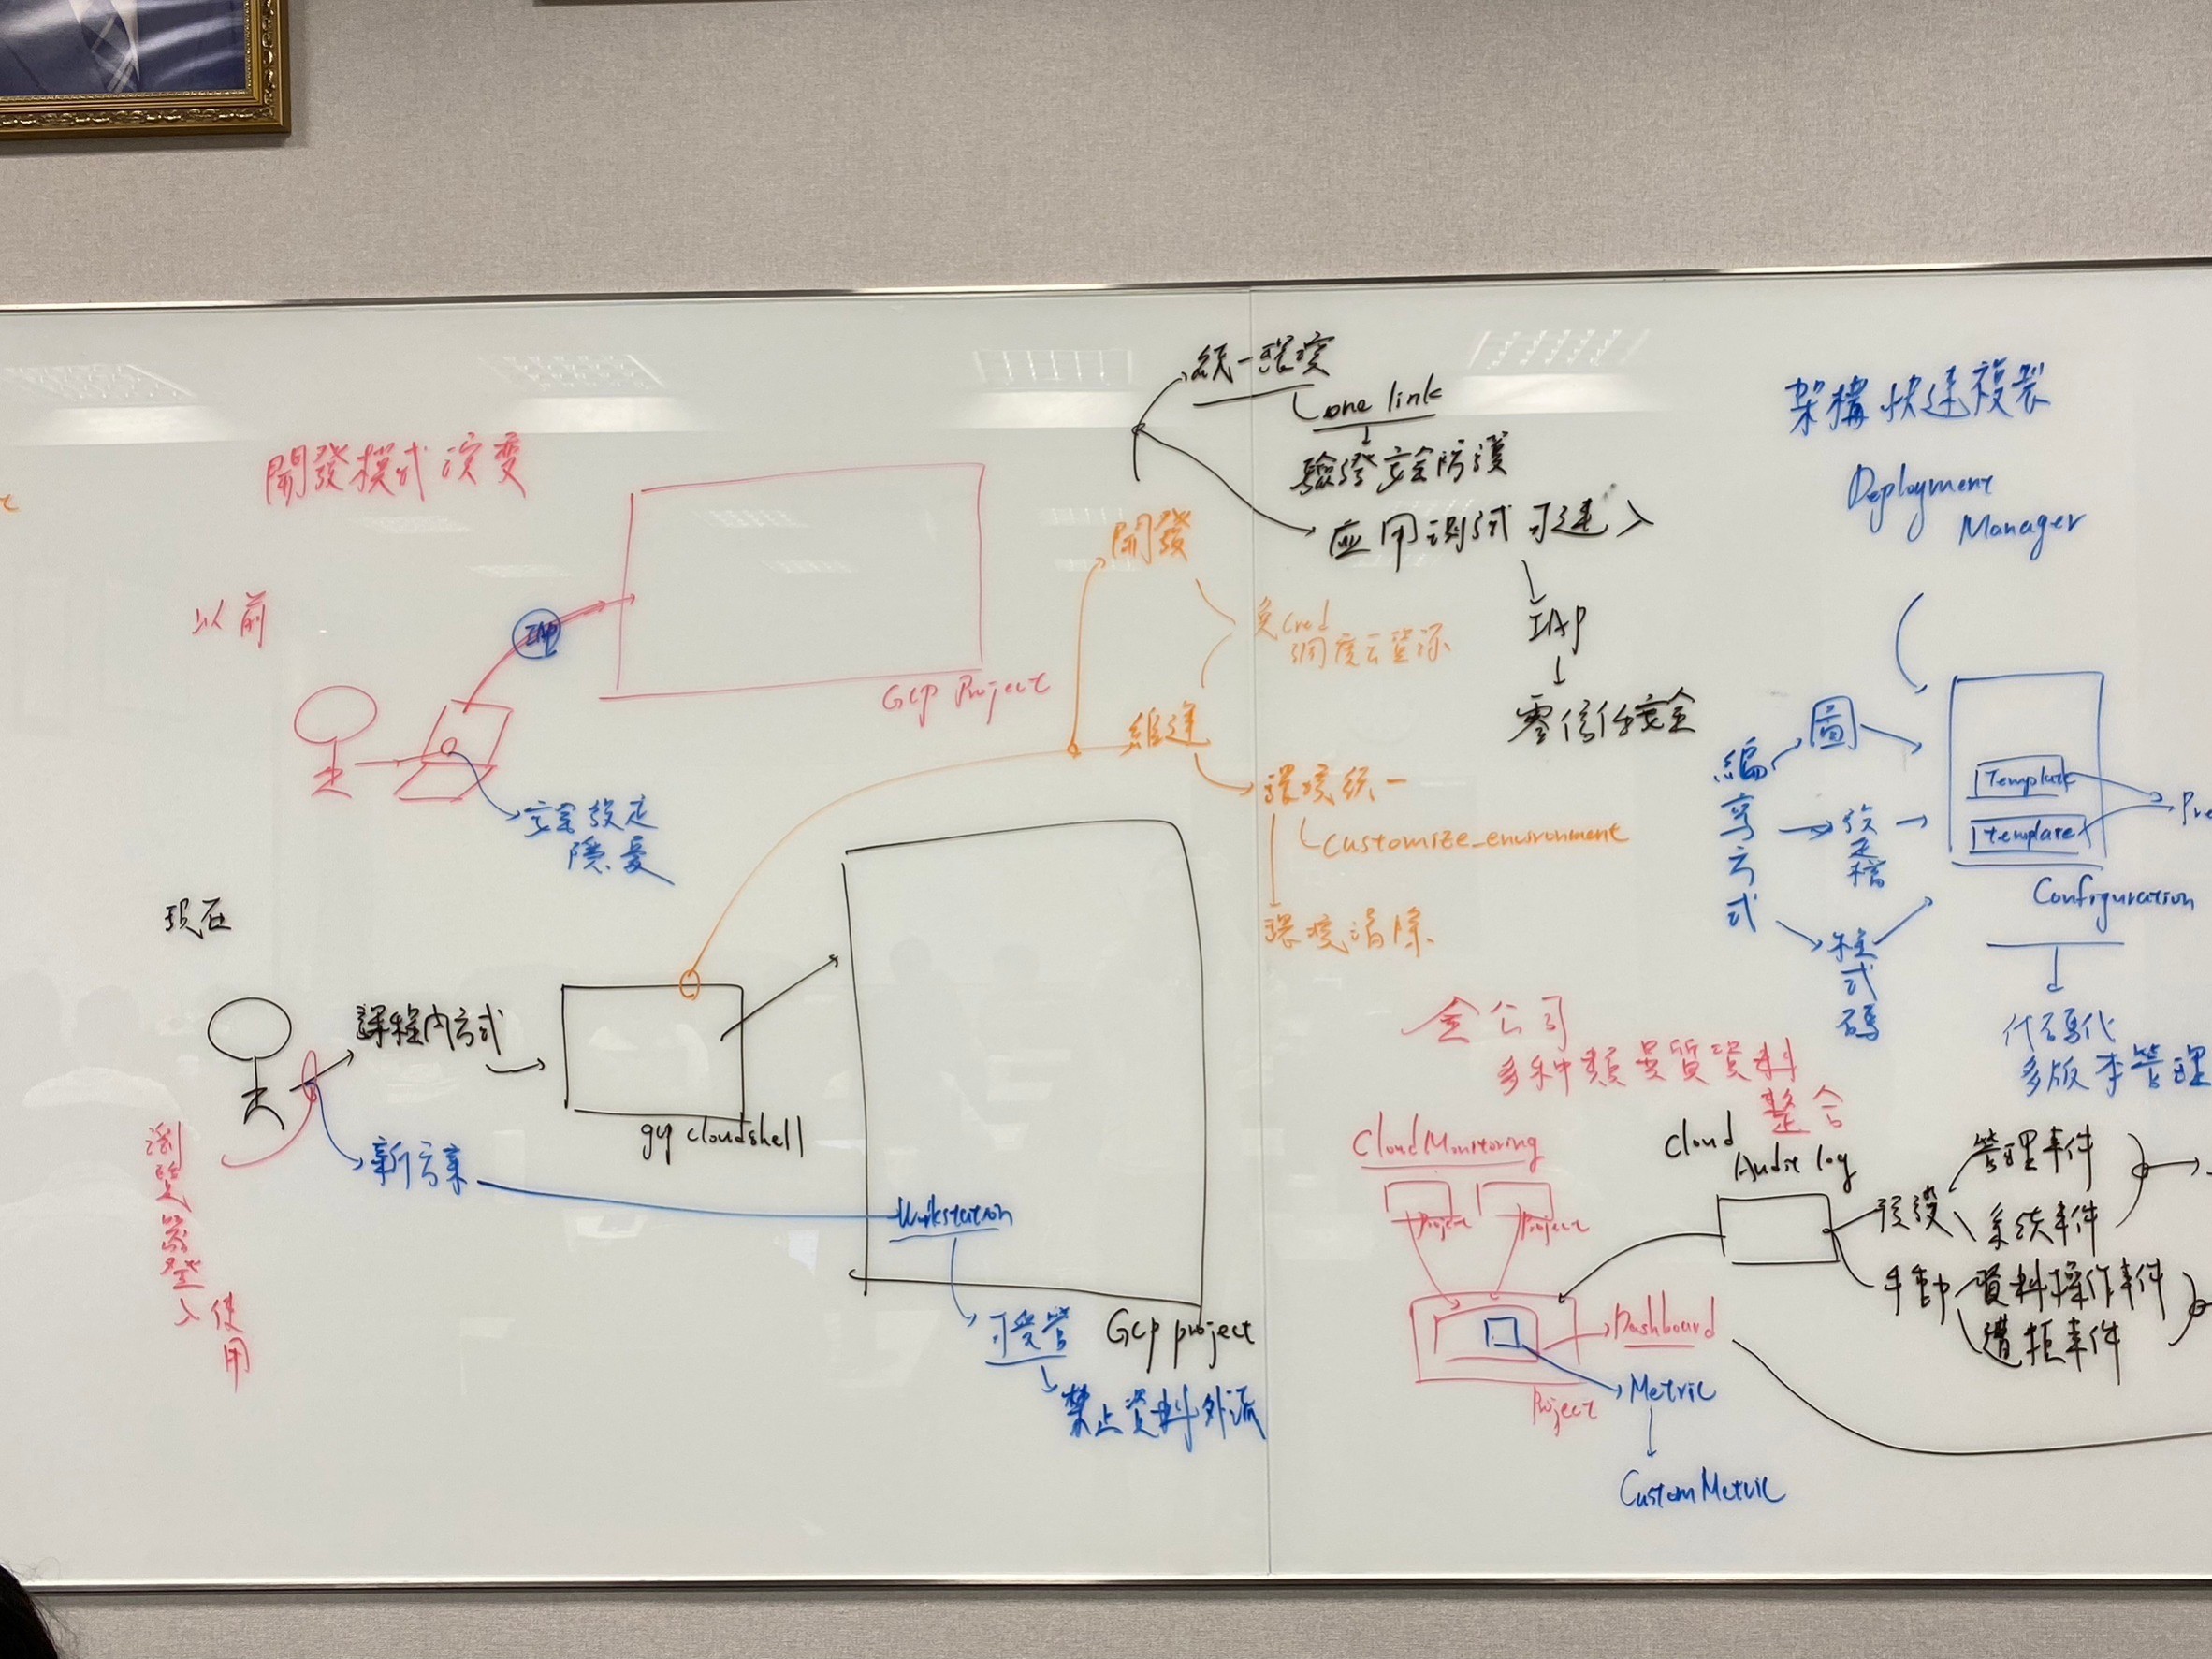 開發模式演變
以前
IAP
GCP Project
安全設定
隱憂
現在
課程內方式
gcp cloudshell
新方案
瀏覽器登入使用
Workstation
可受管
禁止資料外流
GCP project
統一環境
one link
驗證安全防護
应用測試可進入
IAP
零信任安全
開發
免Cred
調度云資源
維運
環境統一
customize_environment
環境清除
架構快速複製
Deployment
Manager
編寫方式
圖
設定檔
程式碼
Template
template
Configuration
代碼化
多版本管理
全公司
多种類異質資料
整合
Cloud Monitoring
Project
Project
Project
Dashboard
Metric
Custom Metric
Cloud
Audit log
預設
管理事件
系統事件
手動
資料操作事件
遭拒事件